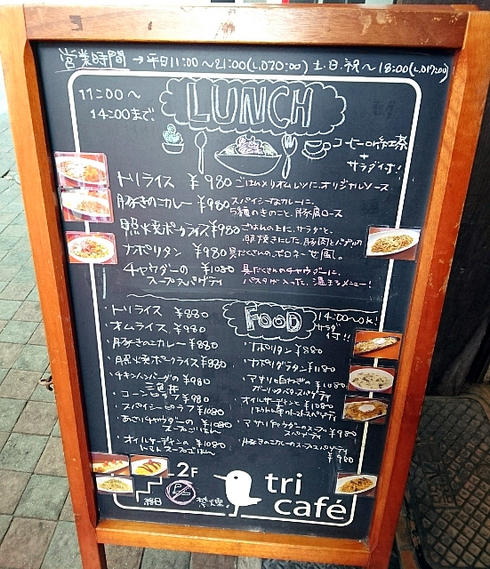 営業時間 → 平日11:00〜21:00(L,O20:00) 土.日.祝〜18:00(L,O17:00)
11:00〜
14:00まで
LUNCH
コーヒーor紅茶
+
サラダ付!
トリライス ¥980 ごはんxオムレツに、オリジナルソース
豚きのこカレー ¥980 スパイシーなカレーに、
5種のきのこと、豚肩ロース
照焼ポークライス ¥980 ごはんの上に、サラダと、
照焼きにした、豚肉と
ナポリタン ¥980 具だくさんの、ボロネーゼ風。
チャウダーの ¥1080 具だくさんのチャウダーに、
スープスパゲティ パスタが入った、温まるメニュー!
FOOD
14:00〜OK!
サラダ
付!!
トリライス ¥880
オムライス ¥980
豚きのこカレー ¥880
照焼ポークライス ¥880
チキンハンバーグの ¥980
三色丼
コーンピラフ ¥980
スパイシーピラフ ¥1080
あさりチャウダーの ¥1080
スープごはん
オイルサーディンの ¥1080
トマトスープごはん
ナポリタン ¥880
ナポリグラタン ¥1180
アサリと ¥1080
ガーリックバタースパゲティ
オイルサーディンと ¥1080
アサリチャウダーのスープ ¥980
スパゲティ
豚きのこカレーのスープスパゲティ
¥980
2F
終日 禁煙
tri
café